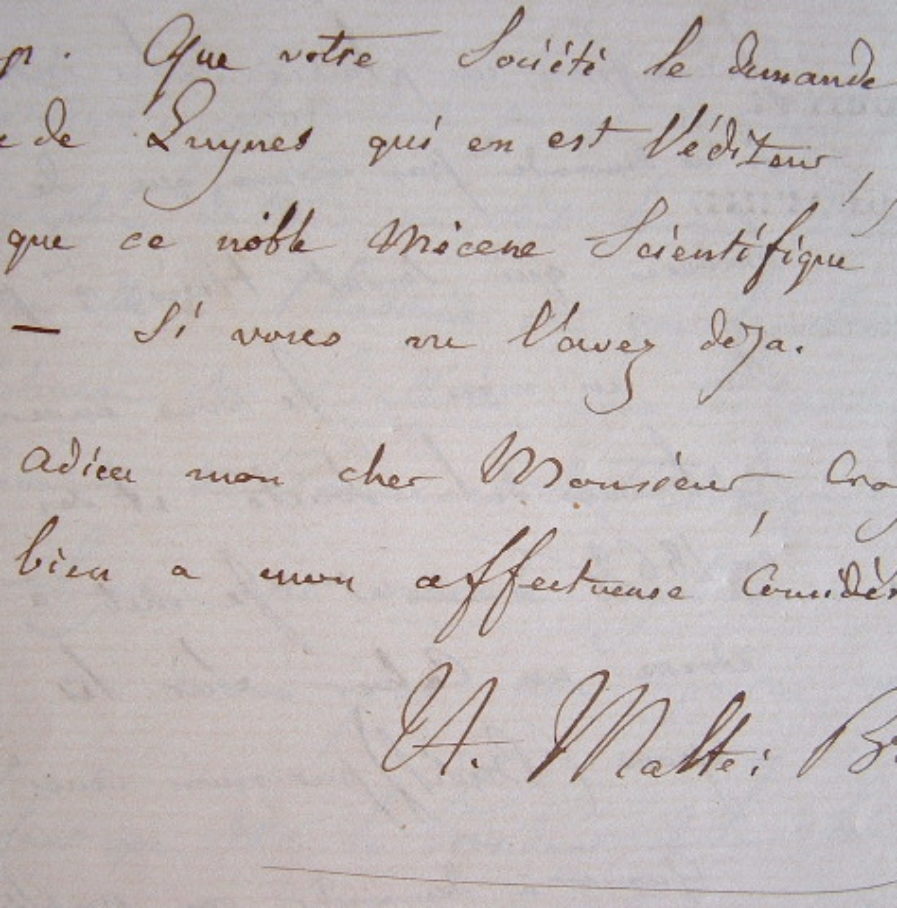 . Que votre Société le demande
de Luynes qui en est l'éditeur,
que ce noble Mécène Scientifique
— Si vous ne l'avez déja.
adieu mon cher Monsieur, Croy
bien a mon affectueuse Considér
V. A. Malte-Br